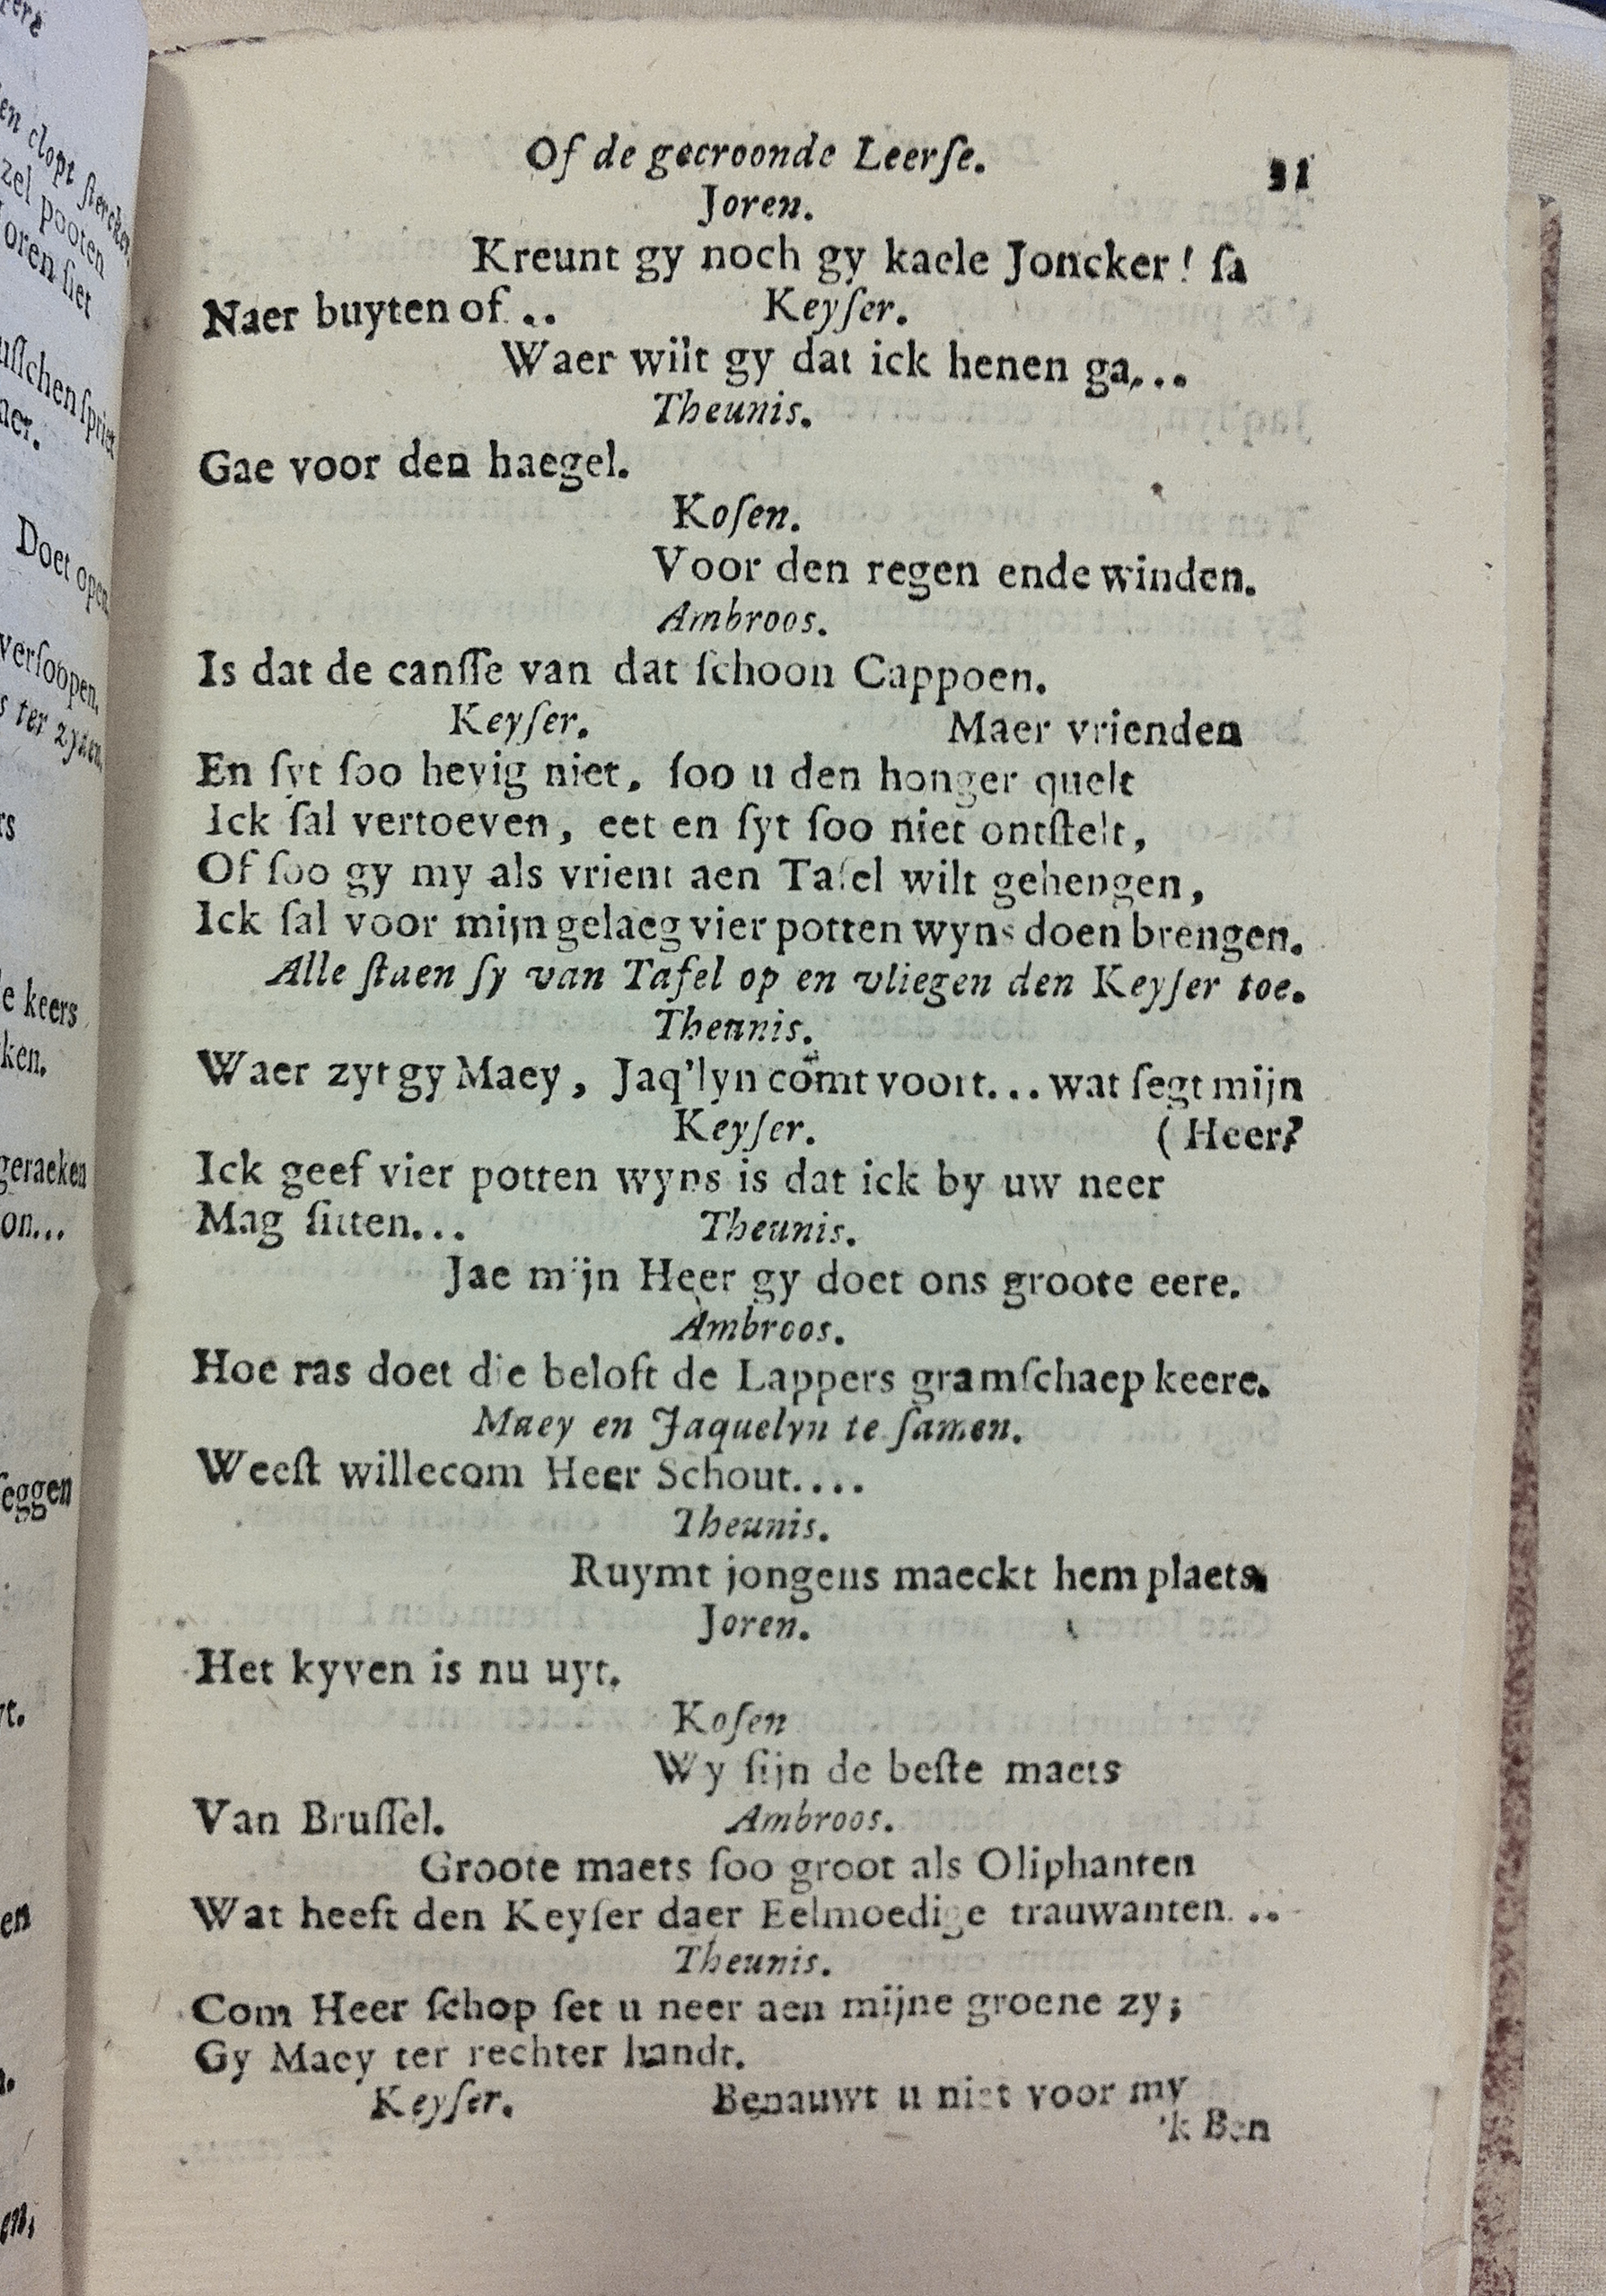 Of de gecroonde Leerſe. 31
Joren.
Kreunt gy noch gy kaele Joncker! ſa
Naer buyten of .. Keyſer.
Waer wilt gy dat ick henen ga,..
Theunis.
Gae voor den haegel.
Koſen.
Voor den regen ende winden.
Ambroos.
Is dat de canſſe van dat ſchoon Cappoen.
Keyſer. Maer vrienden
En ſyt ſoo hevig niet, ſoo u den honger quelt
Ick ſal vertoeven, eet en ſyt ſoo niet ontſtelt,
Of ſoo gy my als vrient aen Tafel wilt gehengen,
Ick ſal voor mijn gelaeg vier potten wyns doen brengen.
Alle ſtaen ſy van Tafel op en vliegen den Keyſer toe.
Theunis.
Waer zyt gy Maey, Jaq'lyn comt voort... wat ſegt mijn
Keyſer. (Heer?
Ick geef vier potten wyns is dat ick by uw neer
Mag ſitten... Theunis.
Jae mijn Heer gy doet ons groote eere.
Ambroos.
Hoe ras doet die beloft de Lappers gramſchaep keere.
Maey en Jaquelyn te ſamen.
Weeſt willecom Heer Schout....
Theunis.
Ruymt jongens maeckt hem plaets.
Joren.
Het kyven is nu uyt.
Koſen
Wy ſijn de beſte maets
Van Bruſſel. Ambroos.
Groote maets ſoo groot als Oliphanten
Wat heeft den Keyſer daer Eelmoedige trauwanten...
Theunis.
Com Heer ſchop ſet u neer aen mijne groene zy;
Gy Maey ter rechter handt.
Keyſer. Benauwt u niet voor my
'k Ben